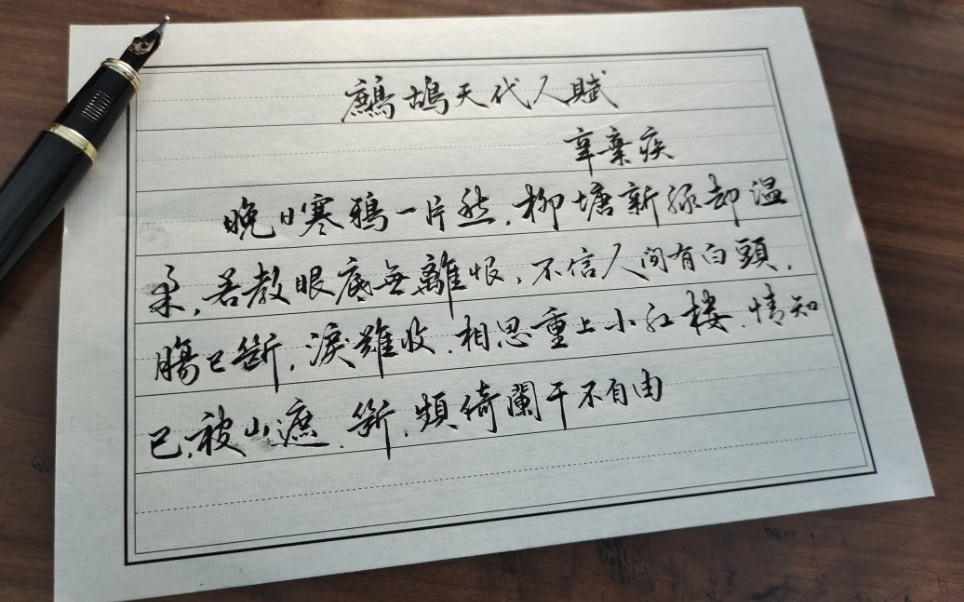 鷓鴣天代人賦
辛棄疾
晚日寒鴉一片愁，柳塘新綠却温
柔，若教眼底無離恨，不信人间有白頭，
腸已斷，淚難收，相思重上小紅楼，情知
已被山遮斷，頻倚闌干不自由